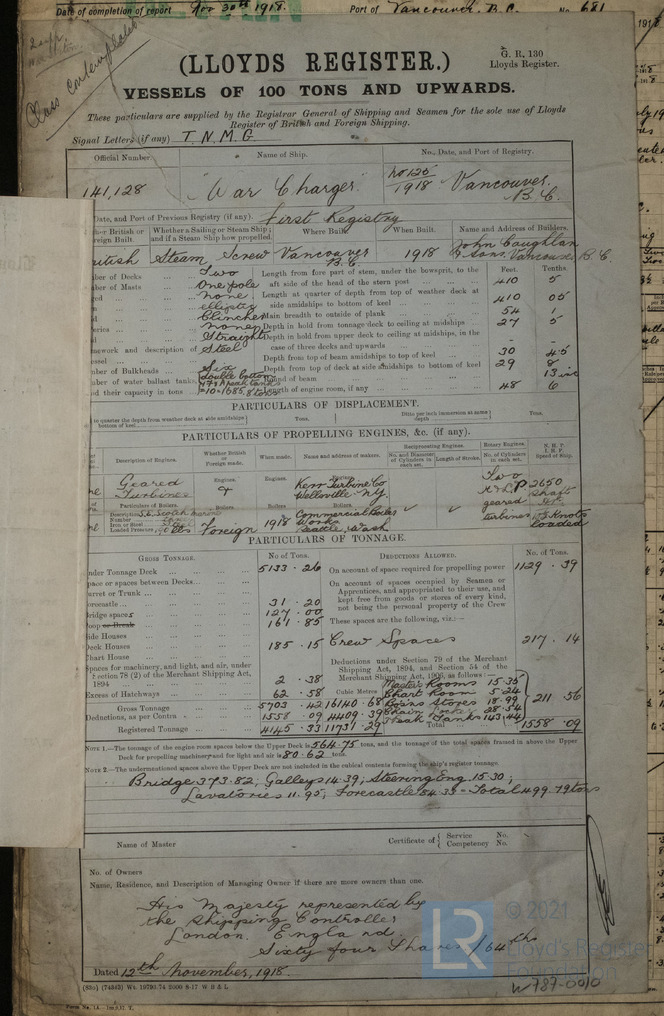 Date of completion of report Nov 30th 1918. Port of Vancouver. B.C. No 681
Class Contemplated
(LLOYDS REGISTER.)
G. R. 130
Lloyds Register.
VESSELS OF 100 TONS AND UPWARDS.
These particulars are supplied by the Registrar General of Shipping and Seamen for the sole use of Lloyds
Register of British and Foreign Shipping.
Signal Letters (if any) T.N.M.G.
Official Number. Name of Ship. No., Date, and Port of Registry.
141,128 "War Charger" No 125/1918 Vancouver, B.C.
Date, and Port of Previous Registry (if any). First Registry
Whether a Sailing or Steam Ship; and if a Steam Ship how propelled. Where Built. When Built. Name and Address of Builders.
Steam Screw Vancouver B.C. 1918 John Coughlan & Sons. Vancouver B.C.
Feet. Tenths.
Two Length from fore part of stem, under the bowsprit, to the
One pole aft side of the head of the stern post 410 5
none Length at quarter of depth from top of weather deck at
elliptic side amidships to bottom of keel 410 05
Clincher Main breadth to outside of plank 54 1
none Depth in hold from tonnage deck to ceiling at midships 27 5
Straight Depth in hold from upper deck to ceiling at midships, in the
Steel case of three decks and upwards - -
Depth from top of beam amidships to top of keel 30 45
Six Depth from top of deck at side amidships to bottom of keel 29 8
Round of beam 13 ins
Length of engine room, if any 48 6
PARTICULARS OF DISPLACEMENT.
PARTICULARS OF PROPELLING ENGINES, &c. (if any).
Description of Engines. Whether British or Foreign made. When made. Name and address of makers. Reciprocating Engines. Rotary Engines. N.H.P. I.H.P. Speed of Ship.
No. and Diameter of Cylinders in each set. Length of Stroke. No. of Cylinders in each set.
Geared Turbines Kerr Turbine Co Wellsville N.Y. Two H & L.P geared turbines 2650 Shaft HP
Particulars of Boilers. Boilers Boilers Boilers
Foreign 1918 Commercial Boiler Works Seattle, Wash Knots loaded
PARTICULARS OF TONNAGE.
GROSS TONNAGE. No. of Tons. DEDUCTIONS ALLOWED. No. of Tons.
Under Tonnage Deck 5133 . 26 On account of space required for propelling power 1129 . 39
Space or spaces between Decks On account of spaces occupied by Seamen or
Turret or Trunk Apprentices, and appropriated to their use, and
Forecastle 31 . 20 kept free from goods or stores of every kind,
Bridge spaces 127 . 00 not being the personal property of the Crew
Poop or Break 161 . 85 These spaces are the following, viz:—
Side Houses
Deck Houses 185 . 15 Crew Spaces 217 . 14
Chart House
Spaces for machinery, and light, and air, under Section 78 (2) of the Merchant Shipping Act, 1894 2 . 38
Deductions under Section 79 of the Merchant Shipping Act, 1894, and Section 54 of the Merchant Shipping Act, 1906, as follows:—
Excess of Hatchways 62 . 58 Cubic Metres
Masters Rooms 15.35
Chart Room 5.24
Bosns Stores 18.99
Chain Locker 28.54
Peak Tanks 143.44
211 . 56
Gross Tonnage 5703 . 42 16140 . 68
Deductions, as per Contra 1558 . 09 4409 . 39
Registered Tonnage 4145 . 33 11731 . 29 Total 1558 . 09
NOTE 1.—The tonnage of the engine room spaces below the Upper Deck is 564.75 tons, and the tonnage of the total spaces framed in above the Upper
Deck for propelling machinery and for light and air is 80.62 tons.
NOTE 2.—The undermentioned spaces above the Upper Deck are not included in the cubical contents forming the ship's register tonnage.
Bridge 373.82; Galleys 14.39; Steering Eng. 15.30;
Lavatories 11.95; Forecastle 84.33 = Total 499.79 tons
Name of Master Certificate of { Service No. Competency No.
No. of Owners
Name, Residence, and Description of Managing Owner if there are more owners than one.
His Majesty represented by
the Shipping Controller
London. England.
Sixty four Shares /64ths
Dated 12th November, 1918.
LR © 2021
Lloyd's Register
Foundation
W787-0010